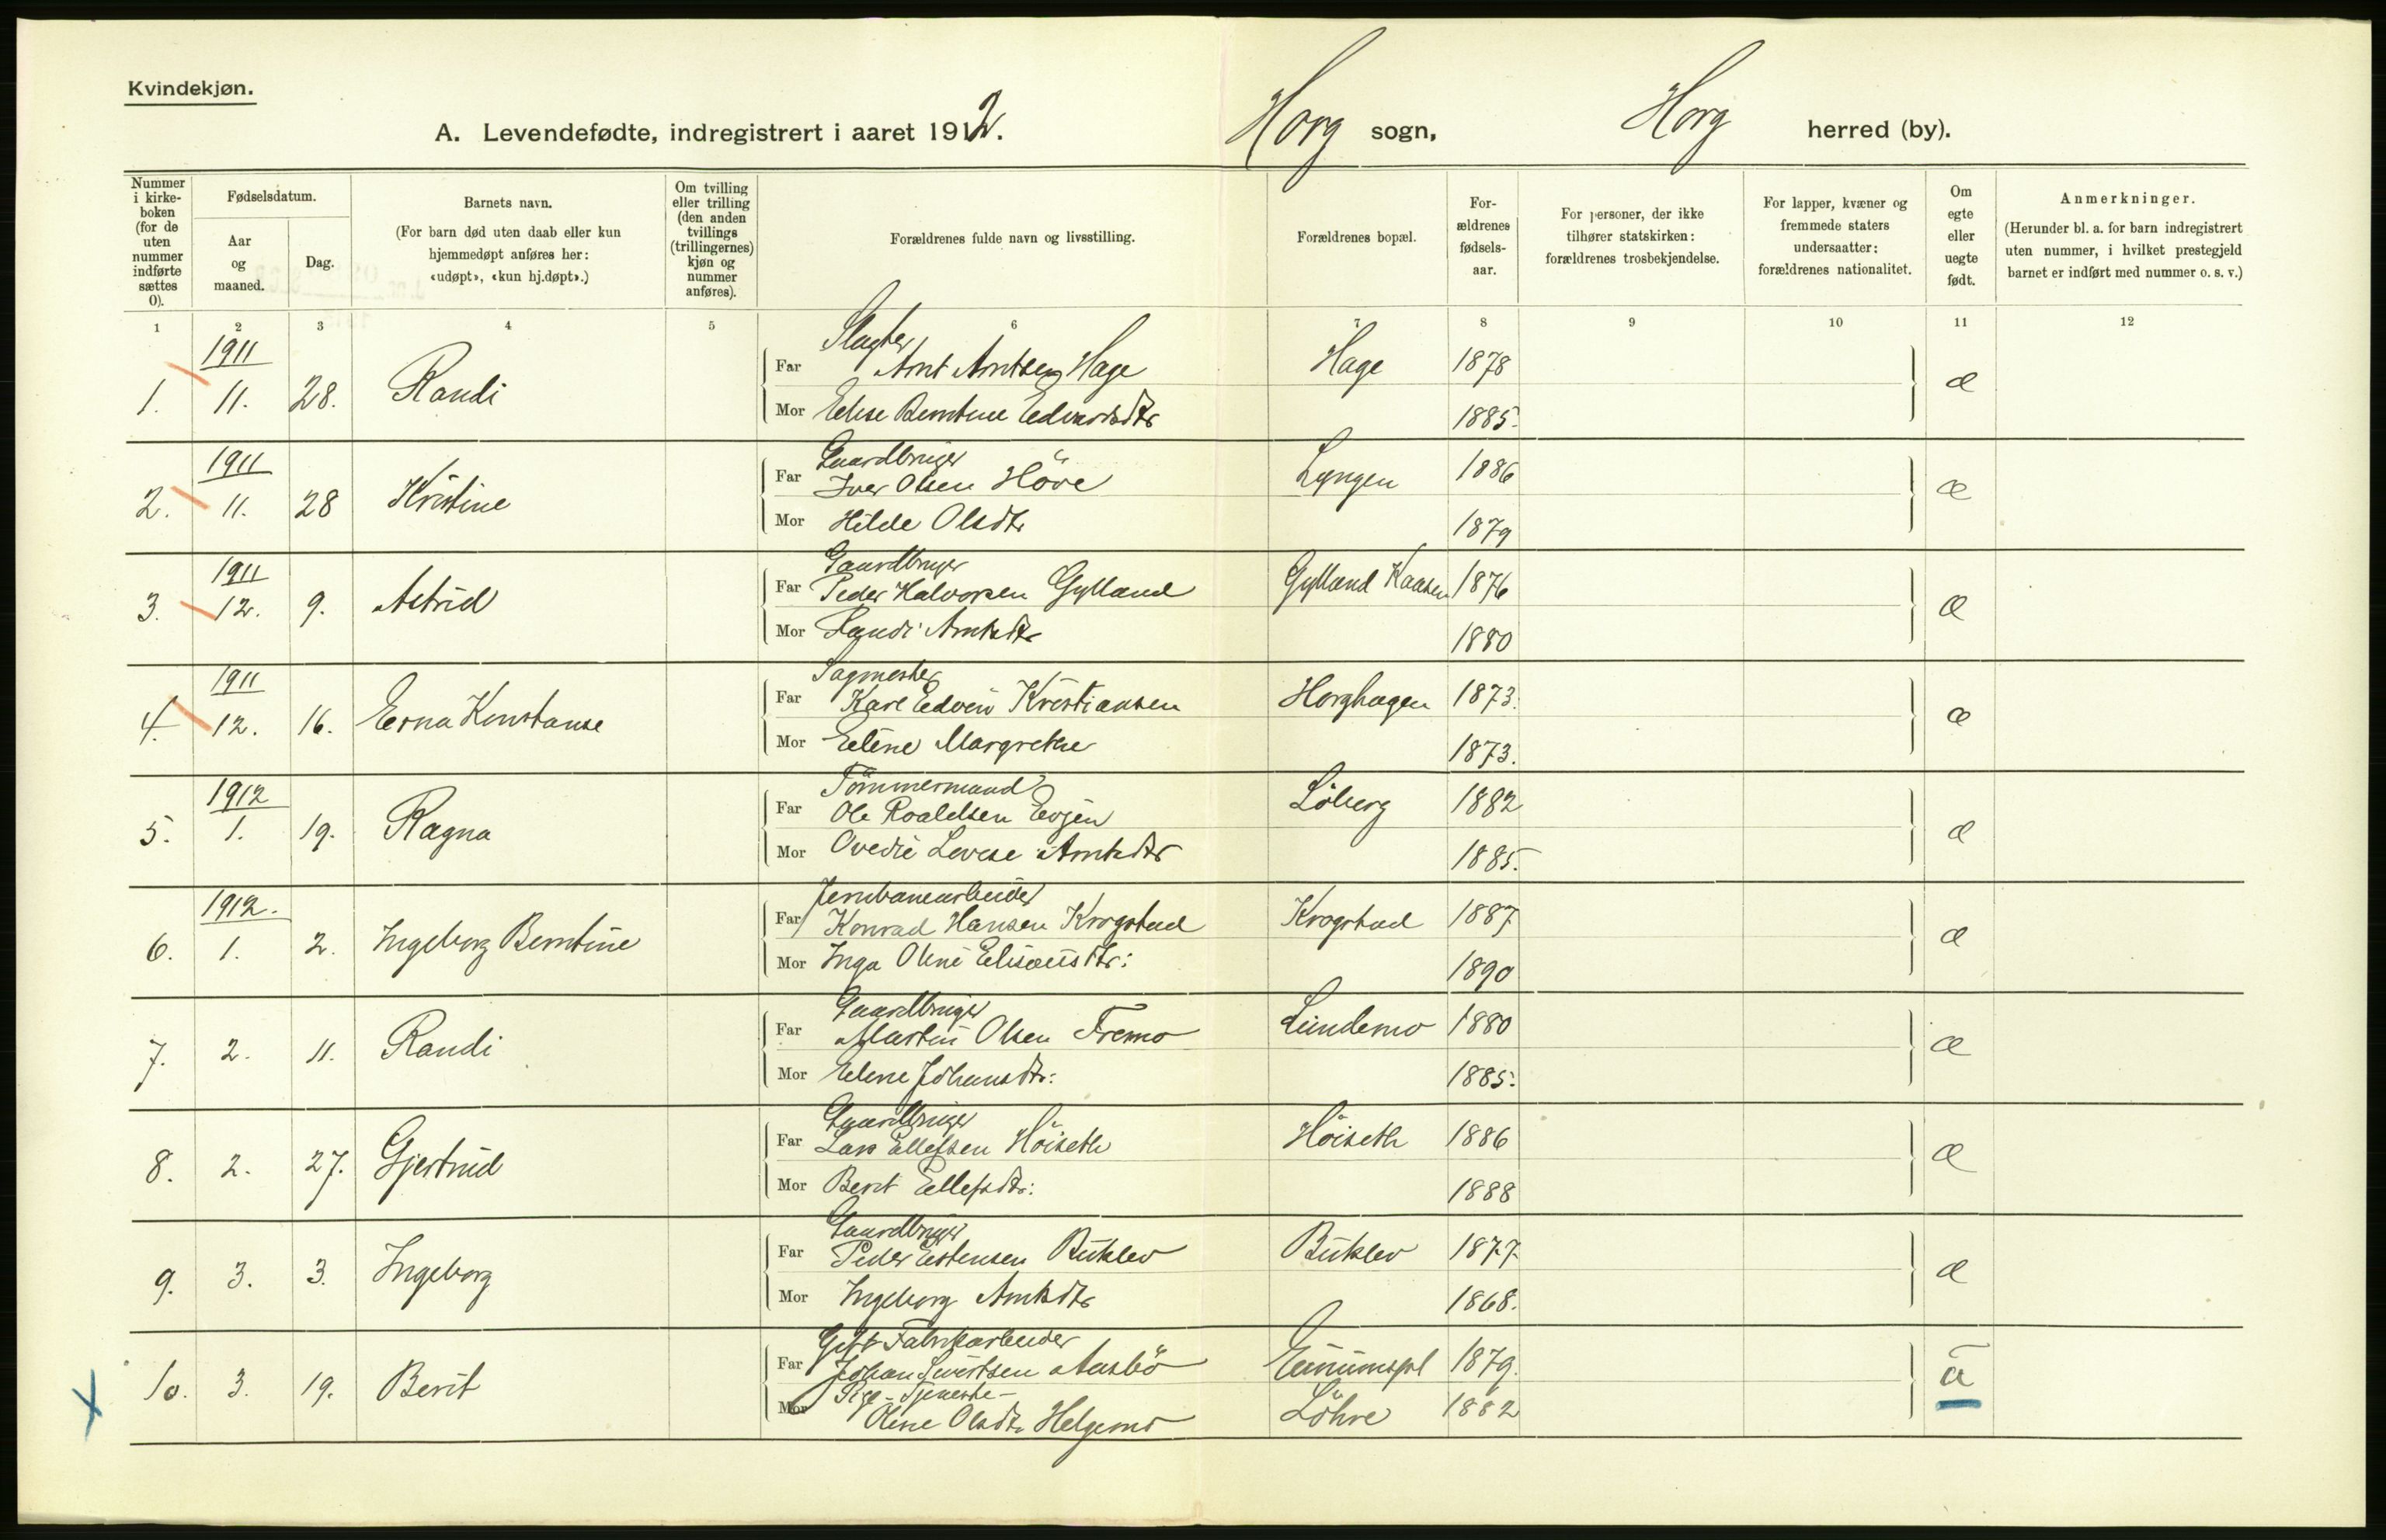 Kvindekjøn.
A. Levendefødte, indregistrert i aaret 1912. Horg sogn, Horg herred (by).
Nummer i kirke-boken (for de uten nummer indførte sættes 0).
Fødselsdatum.
Aar og maaned.
Dag.
Barnets navn.
(For barn død uten daab eller kun hjemmedøpt anføres her: «udøpt», «kun hj.døpt».)
Om tvilling eller trilling (den anden tvillings (trillingernes) kjøn og nummer anføres).
Forældrenes fulde navn og livsstilling.
Forældrenes bopæl.
For-ældrenes fødsels-aar.
For personer, der ikke tilhører statskirken: forældrenes trosbekjendelse.
For lapper, kvæner og fremmede staters undersaatter: forældrenes nationalitet.
Om egte eller uegte født.
Anmerkninger.
(Herunder bl. a. for barn indregistrert uten nummer, i hvilket prestegjeld barnet er indført med nummer o. s. v.)
1 2 3 4 5 6 7 8 9 10 11 12
1911 Slagter
1. 11. 28. Randi Far Arnt Arntsen Hage Hage 1878 æ
Mor Elise Berntine Edvardsdtr 1885.
1911 Gaardbruger
2. 11. 28 Kristine Far Iver Olsen Höve Lyngen 1886 æ
Mor Hilde Olsdtr 1879
1911 Gaardbruger
3. 12. 9. Astrid Far Peder Halvorsen Gylland Gylland Kaasen 1876 æ
Mor Randi Arntsdtr 1880
1911 Sagmester
4. 12. 16. Erna Konstanse Far Karl Edvin Kristiansen Horghagen 1873. æ
Mor Eline Margrethe 1873.
1912 Tömmermand
5. 1. 19. Ragna Far Ole Roaldsen Evjen Löberg 1882 æ
Mor Ovedie Lovise Arntsdtr 1885.
1912. Jernbanearbeider
6. 1. 2. Ingeborg Berntine Far Konrad Hansen Krogstad Krogstad 1887 æ
Mor Inga Oline Elisæusdtr: 1890
Gaardbruger
7. 2. 11. Randi Far Martin Olsen Fremo Lundemo 1880 æ
Mor Eline Johansdtr: 1885.
Gaardbruger
8. 2. 27. Gjertrud Far Lars Ellefsen Höiseth Höiseth 1886 æ
Mor Berit Ellefsdtr: 1888
Gaardbruger
9. 3. 3. Ingeborg Far Peder Estensen Buklev Buklev 1877 æ
Mor Ingeborg Arntsdtr 1868.
Gift Fabrikarbeider
10. 3. 19. Berit Far Johan Sivertsen Aasbö Enumspl 1879. u
Pige - Tjeneste -
Mor Oline Olsdtr Helgemo Löhre 1882